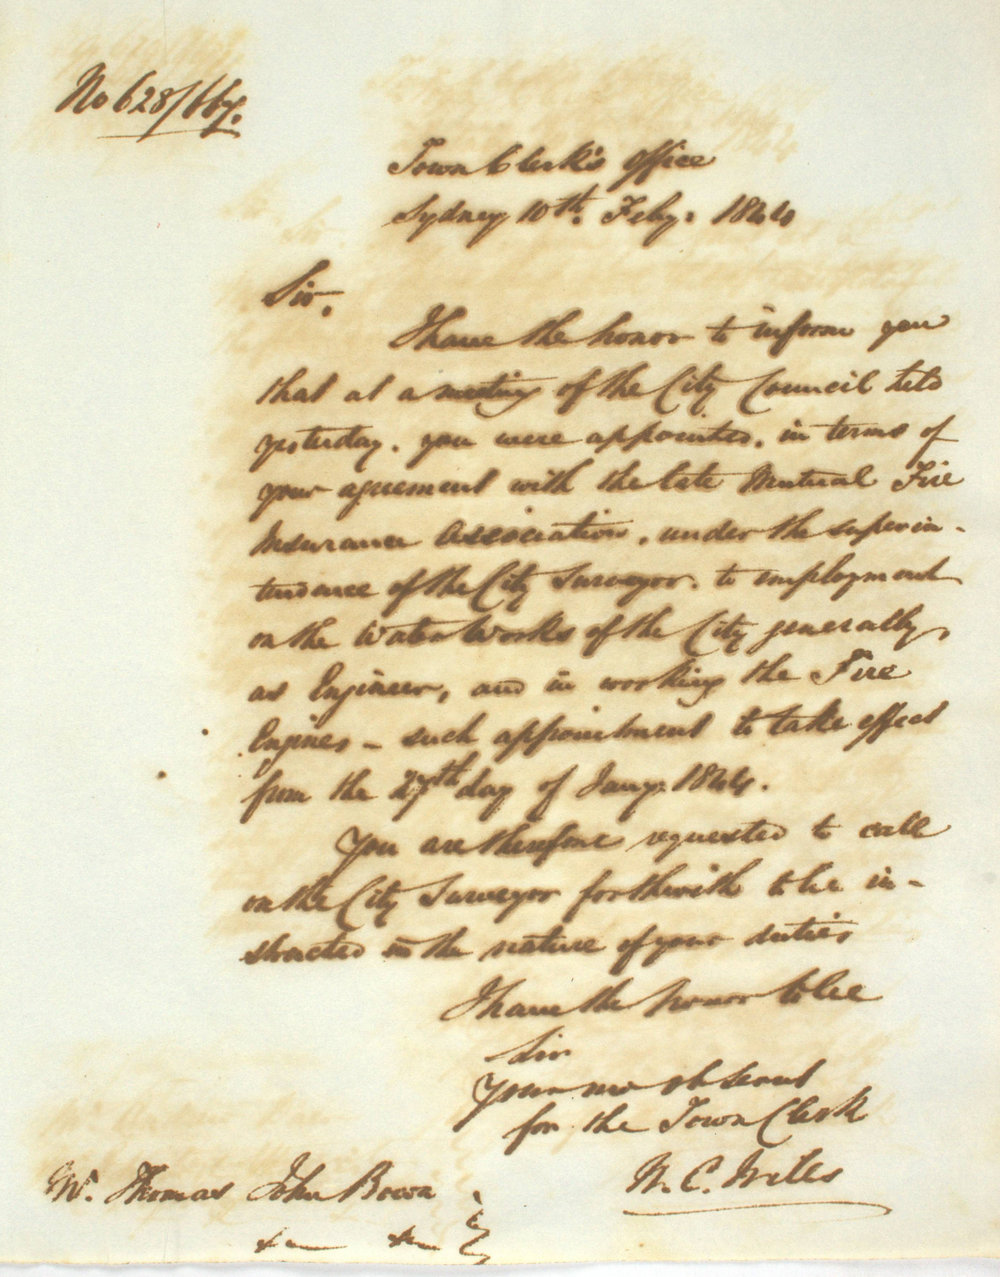 No 628/667.
Town Clerk's Office
Sydney 10th. Feby. 1844
Sir,
I have the honor to inform you
that at a meeting of the City Council held
yesterday. you were appointed. in terms of
your agreement with the late Mutual Fire
Insurance Association, under the superin-
tendance of the City Surveyor. to employment
on the Water Works of the City generally,
as Engineer, and in working the Fire
Engines - such appointment to take effect
from the 27th day of Jany. 1844.
You are therefore requested to call
on the City Surveyor forthwith to be in-
structed in the nature of your duties
I have the honor to be
Sir
Your mo ob servt
for the Town Clerk
Mr. Thomas John Bown
&c &c